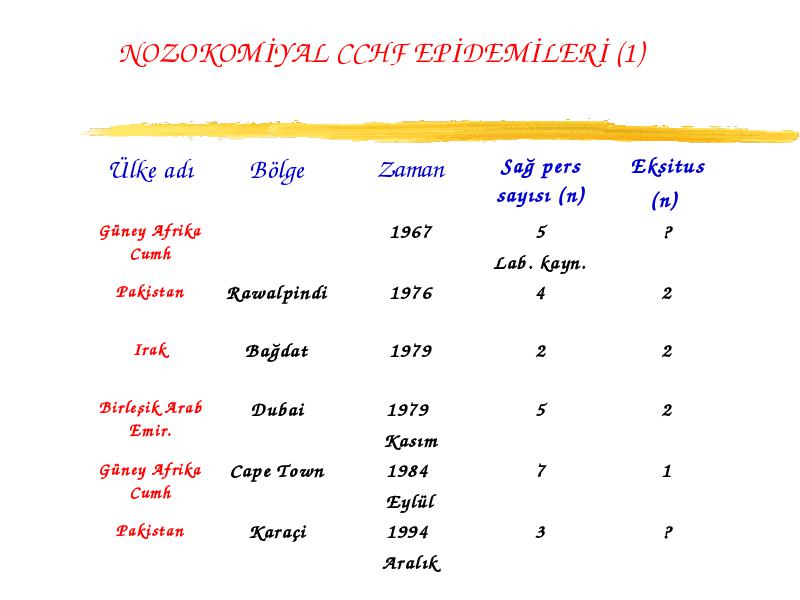 NOZOKOMİYAL CCHF EPİDEMİLERİ (1)
Ülke adı Bölge Zaman Sağ pers sayısı (n) Eksitus (n)
Güney Afrika Cumh 1967 5 Lab. kayn. ?
Pakistan Rawalpindi 1976 4 2
Irak Bağdat 1979 2 2
Birleşik Arab Emir. Dubai 1979 Kasım 5 2
Güney Afrika Cumh Cape Town 1984 Eylül 7 1
Pakistan Karaçi 1994 Aralık 3 ?